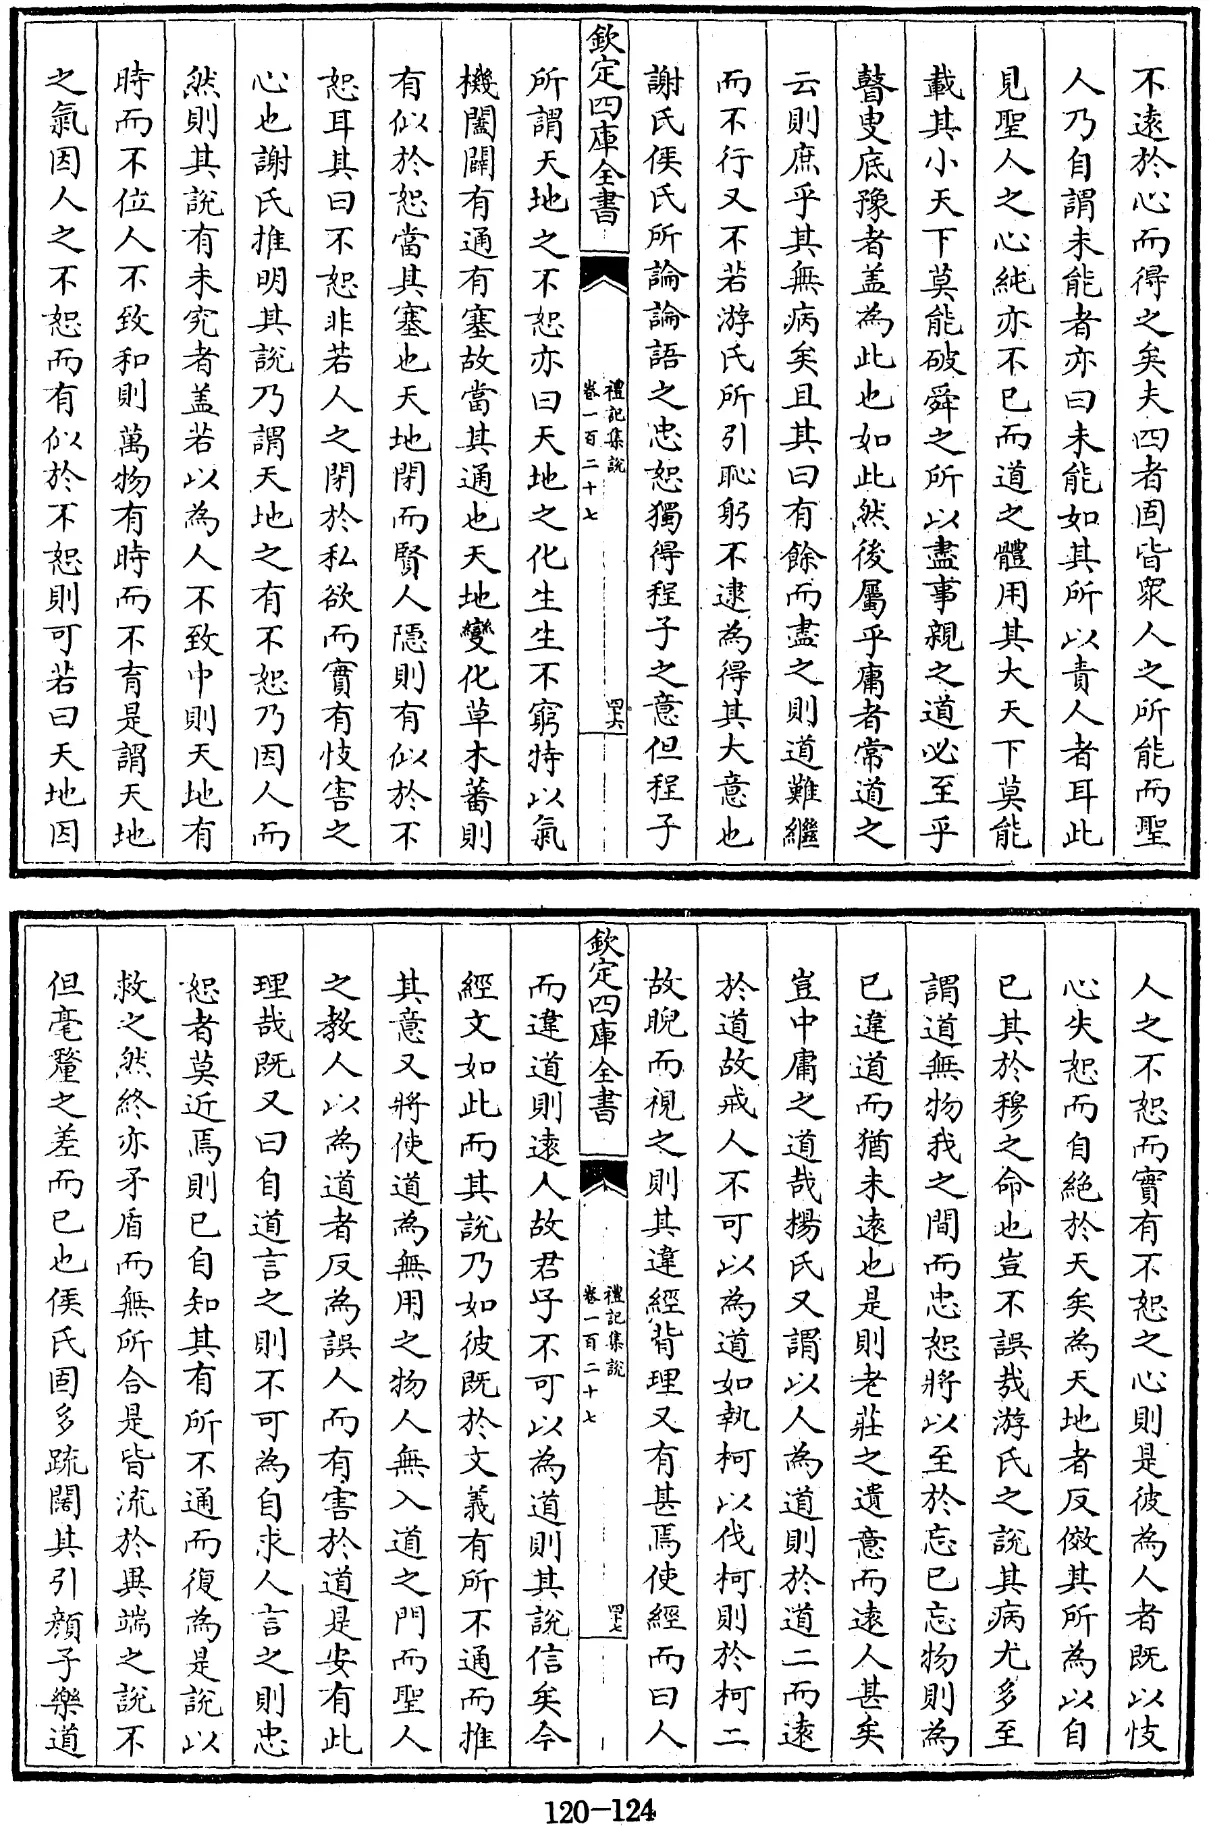 不遠於心而得之矣夫四者固皆衆人之所能而聖
人乃自謂未能者亦曰未能如其所以責人者耳此
見聖人之心純亦不已而道之體用其大天下莫能
載其小天下莫能破舜之所以盡事親之道必至乎
瞽叟底豫者盖為此也如此然後屬乎庸者常道之
云則庶乎其無病矣且其曰有餘而盡之則道難繼
而不行又不若游氏所引恥躬不逮為得其大意也
謝氏侯氏所論論語之忠恕獨得程子之意但程子
欽定四庫全書
禮記集說
卷一百二十七
四十六
所謂天地之不恕亦曰天地之化生生不窮特以氣
機闔闢有通有塞故當其通也天地變化草木蕃則
有似於恕當其塞也天地閉而賢人隱則有似於不
恕耳其曰不恕非若人之閉於私欲而實有忮害之
心也謝氏推明其說乃謂天地之有不恕乃因人而
然則其說有未究者盖若以為人不致中則天地有
時而不位人不致和則萬物有時而不育是謂天地
之氣因人之不恕而有似於不恕則可若曰天地因
人之不恕而實有不恕之心則是彼為人者既以忮
心失恕而自絶於天矣為天地者反傚其所為以自
已其於穆之命也豈不誤哉游氏之說其病尤多至
謂道無物我之間而忠恕將以至於忘已忘物則為
已違道而猶未遠也是則老莊之遺意而遠人甚矣
豈中庸之道哉楊氏又謂以人為道則於道二而遠
於道故戒人不可以為道如執柯以伐柯則於柯二
故睨而視之則其違經背理又有甚焉使經而曰人
欽定四庫全書
禮記集說
卷一百二十七
四十七
而違道則遠人故君子不可以為道則其說信矣今
經文如此而其說乃如彼既於文義有所不通而推
其意又將使道為無用之物人無入道之門而聖人
之教人以為道者反為誤人而有害於道是安有此
理哉既又曰自道言之則不可為自求人言之則忠
恕者莫近焉則已自知其有所不通而復為是說以
救之然終亦矛盾而無所合是皆流於異端之說不
但毫釐之差而已也侯氏固多疏闊其引顔子樂道
120-124